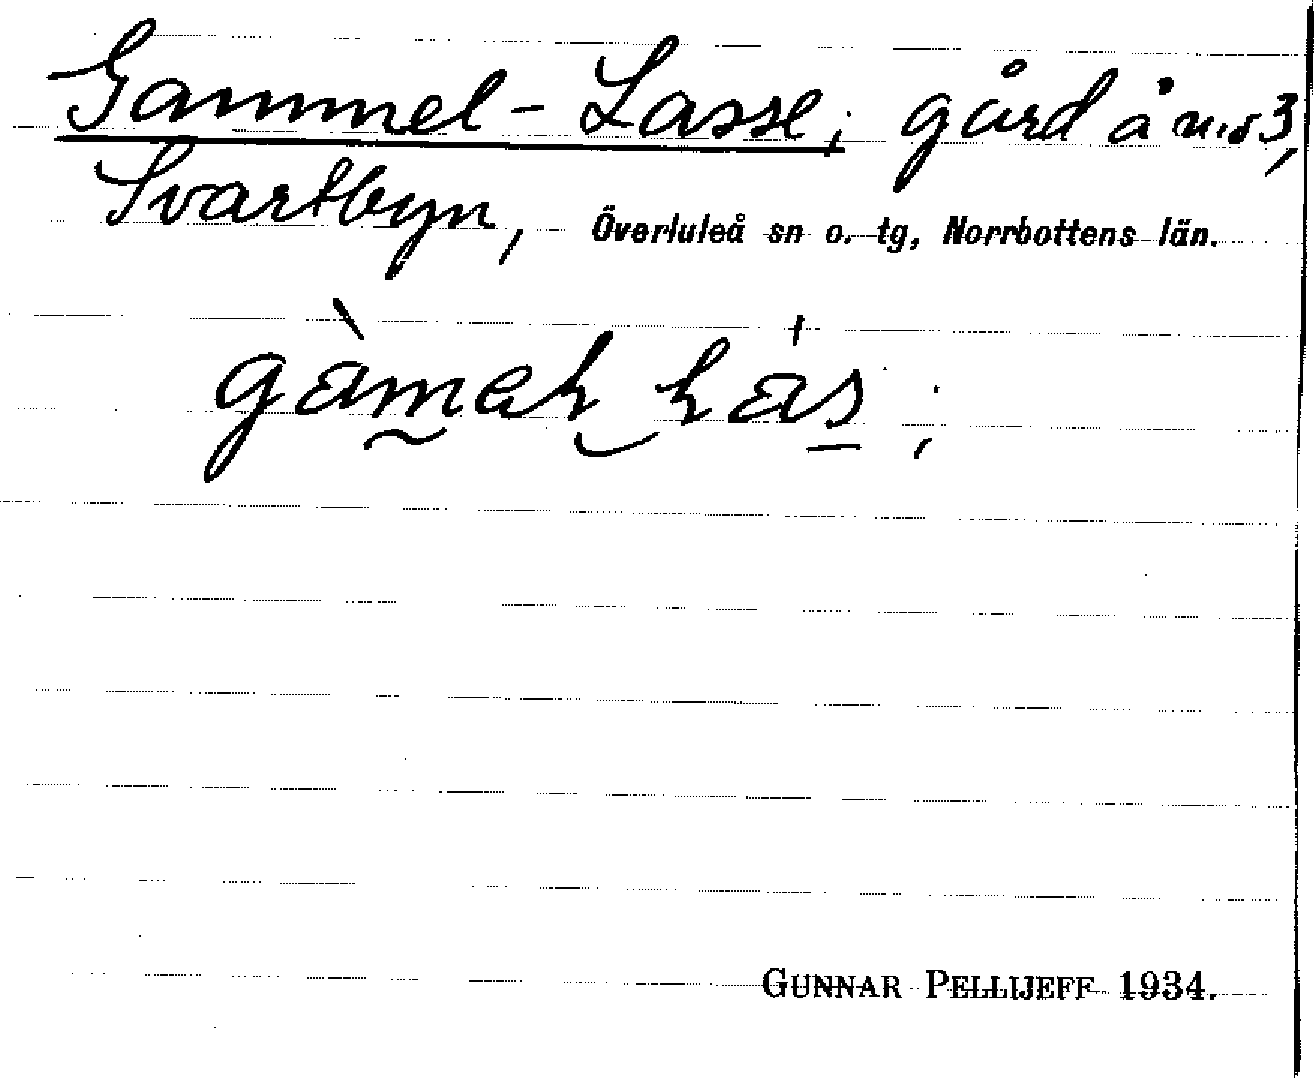 Gammel-Lasse; gård å n:o 3,
Svartbyn, Överluleå sn o. tg, Norrbottens län.
GUNNAR PELLIJEFF 1934.